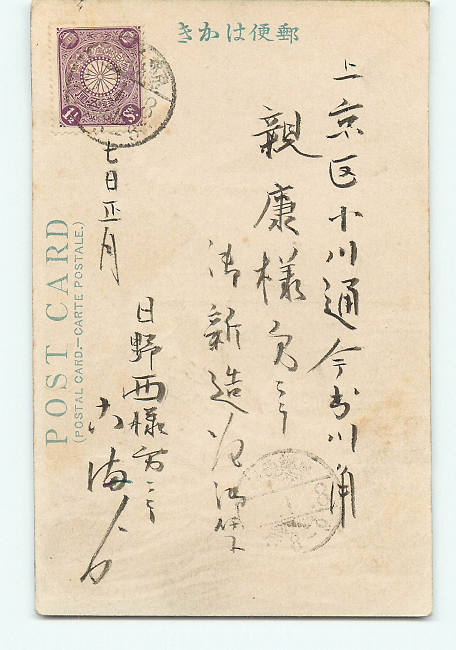 郵便はかき
上京区小川通今出川角
親康様方ニテ
御新造
日野西様方ニテ
七日正月
POST CARD
(POSTAL CARD.—CARTE POSTALE.)
1½ Sn